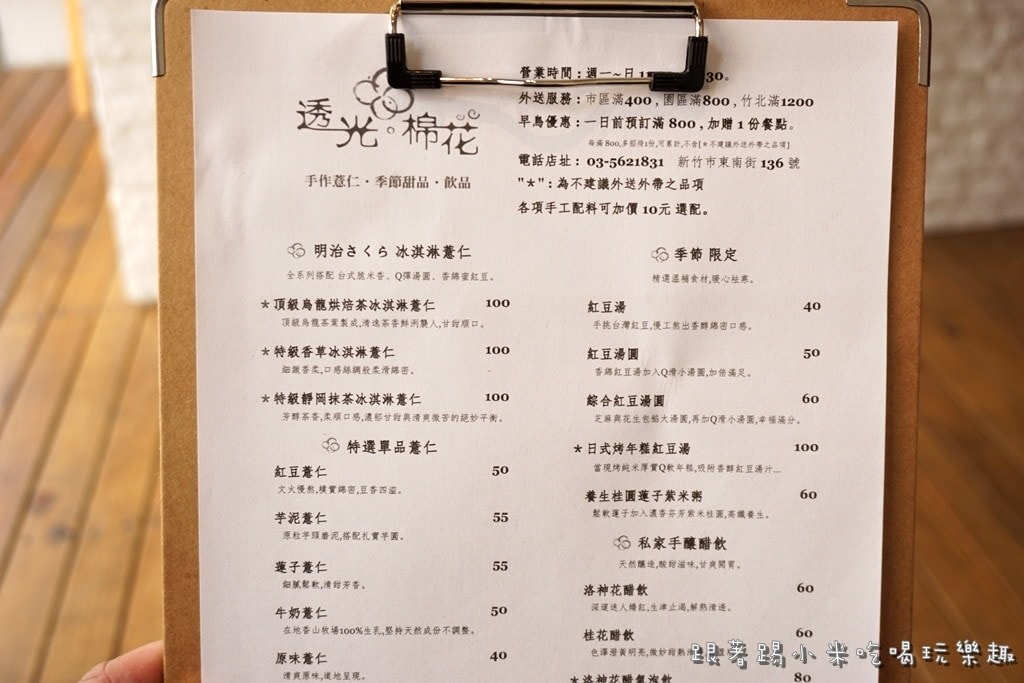 透光。棉花
手作薏仁・季節甜品・飲品
營業時間：週一~日 1 30。
外送服務：市區滿400 , 園區滿800 , 竹北滿1200
早鳥優惠：一日前預訂滿 800 , 加贈 1 份餐點。
每滿 800,多招待1份,可累計,不含[＊不建議外送外帶之品項]
電話店址： 03-5621831 新竹市東南街 136 號
"＊" : 為不建議外送外帶之品項
各項手工配料可加價 10元 選配。
明治さくら 冰淇淋薏仁
全系列搭配 台式脆米香、Q彈湯圓、香綿蜜紅豆。
＊頂級烏龍烘焙茶冰淇淋薏仁 100
頂級烏龍茶葉製成,清逸茶香鮮洌襲人,甘甜順口。
＊特級香草冰淇淋薏仁 100
細緻香柔,口感絲綢般柔滑綿密。
＊特級靜岡抹茶冰淇淋薏仁 100
芳醇茶香,柔順口感,濃郁甘甜與清爽微苦的絕妙平衡。
特選單品薏仁
紅豆薏仁 50
文火慢熬,樸實綿密,豆香四溢。
芋泥薏仁 55
原粒芋頭磨泥,搭配扎實芋圓。
蓮子薏仁 55
細膩鬆軟,清甜芳香。
牛奶薏仁 50
在地香山牧場100%生乳,堅持天然成份不調整。
原味薏仁 40
清爽原味,道地呈現。
季節 限定
精選溫補食材,暖心祛寒。
紅豆湯 40
手挑台灣紅豆,慢工熬出香醇綿密口感。
紅豆湯圓 50
香綿紅豆湯加入Q滑小湯圓,加倍滿足。
綜合紅豆湯圓 60
芝麻與花生包餡大湯圓,再加Q滑小湯圓,幸福滿分。
＊日式烤年糕紅豆湯 100
當現烤純米厚實Q軟年糕,吸附香醇紅豆湯汁...
養生桂圓蓮子紫米粥 60
鬆軟蓮子加入濃香芬芳紫米桂圓,高纖養生。
私家手釀醋飲
天然釀造,酸甜滋味,甘爽開胃。
洛神花醋飲 60
深邃迷人嬌紅,生津止渴,解熱清邊。
桂花醋飲 60
色澤澄黃明亮,微妙甜熟
＊洛神花醋氣泡飲 80
跟著踢小米吃喝玩樂趣